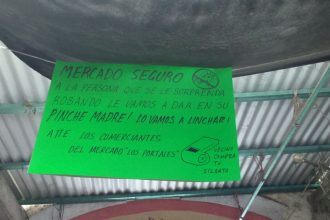 MERCADO SEGURO
A LA PERSONA QUE SE LE SORPRENDA
ROBANDO LE VAMOS A DAR EN SU
PINCHE MADRE! LO VAMOS A LINCHAR!
ATTE LOS COMERCIANTES
DEL MERCADO "LOS PORTALES"
VECINO
COMPRA
TU
SILBATO